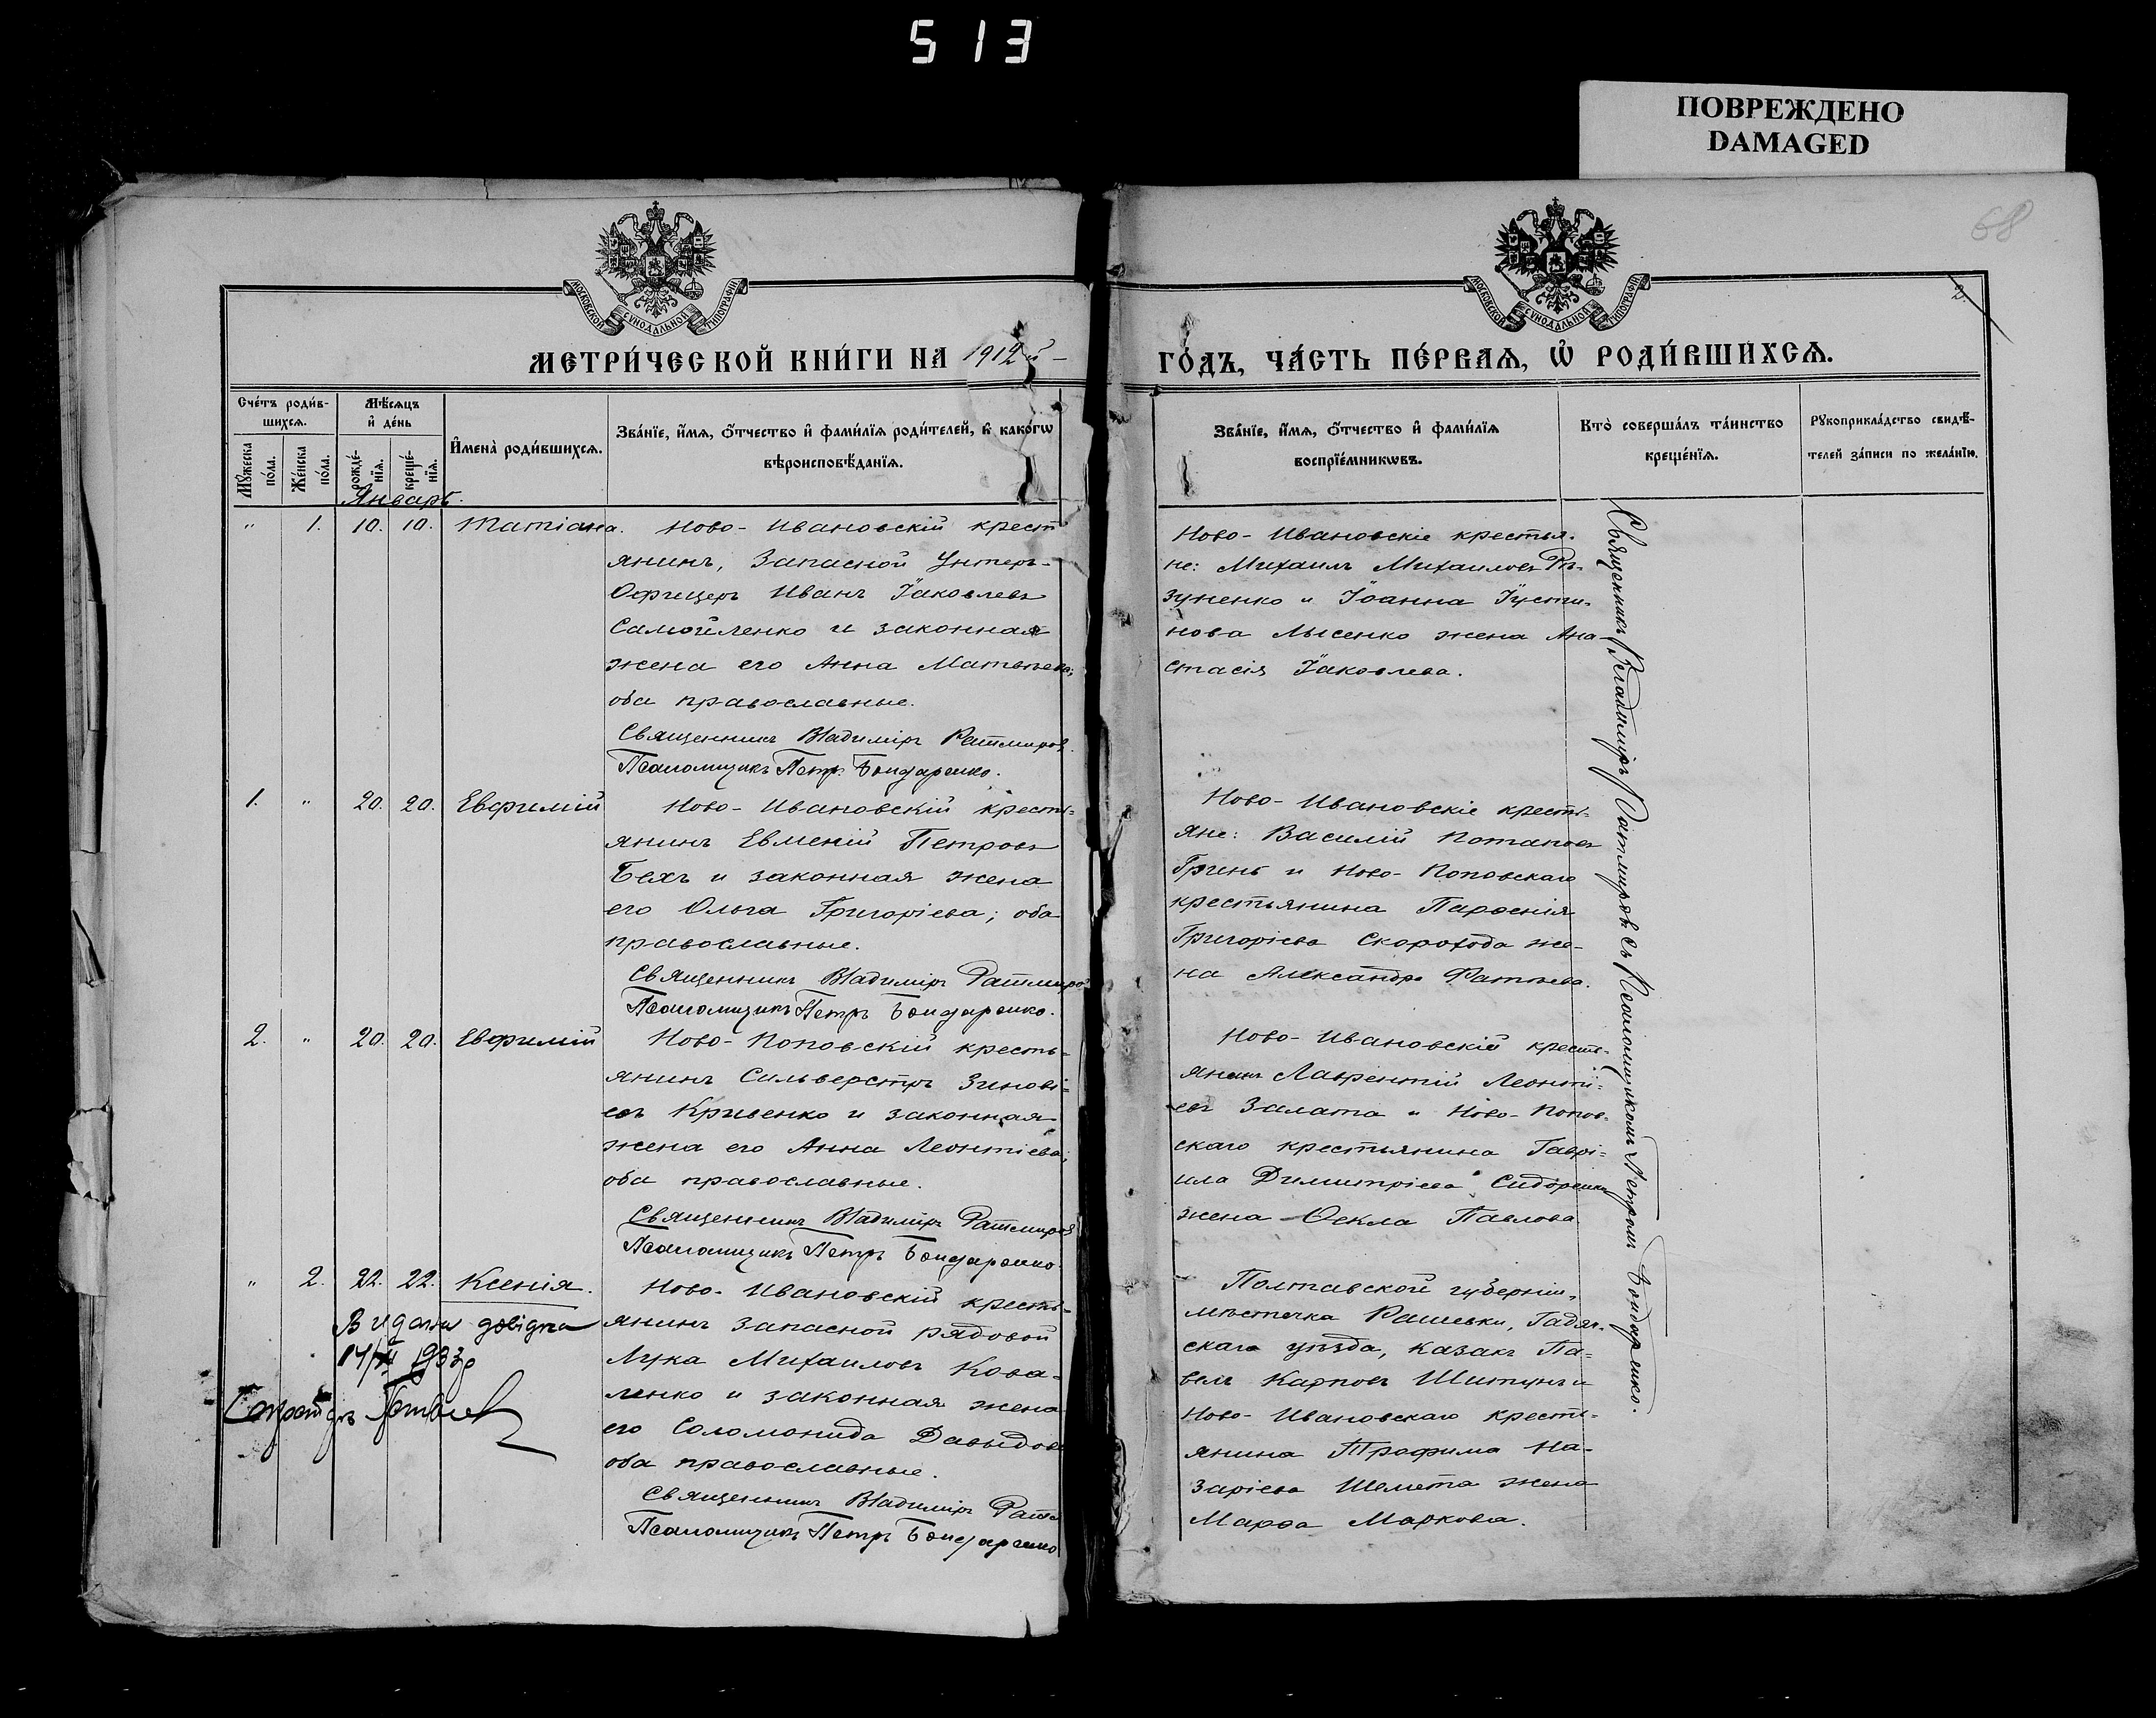 513
ПОВРЕЖДЕНО
DAMAGED
68
2
МОСКОВСКОЙ СѴНОДАЛЬНОЙ ТИПОГРАФІИ
МОСКОВСКОЙ СѴНОДАЛЬНОЙ ТИПОГРАФІИ
МЕТРИ́ЧЕСКОЙ КНИ́ГИ НА 1912й
ГО́ДЪ, ЧА́СТЬ ПЕ́РВАѦ, Ѡ҆ РОДИ́ВШИХСѦ.
Сче́тъ роди́в-
шихсѧ.
Мꙋ́жеска
по́ла.
Же́нска
по́ла.
Мѣ́сѧцъ
и҆ де́нь
рожде́-
нїѧ.
креще́-
нїѧ.
И҆мена̀ роди́вшихсѧ.
Зва́нїе, и҆́мѧ, ѻ҆́тчество и҆ фами́лїѧ роди́телей, и҆ како́гѡ
вѣроисповѣ́данїѧ.
Зва́нїе, и҆́мѧ, ѻ҆́тчество и҆ фами́лїѧ
воспрїе́мникѡвъ.
Кто̀ соверша́лъ та́инство
креще́нїѧ.
Рꙋкоприкла́дство свидѣ́-
телей за́писи по жела́нїю.
Январь.
" 1. 10. 10. Татіана.
Ново-Ивановскій крест
янинъ, Запасной Унтеръ-
Офицеръ Иванъ Іаковлевъ
Самойленко и законная
жена его Анна Матвѣева;
оба православные.
Священникъ Владиміръ Ратмиров
Псаломщикъ Петръ Бондаренко.
Ново-Ивановскіе крестья-
не: Михаилъ Михаиловъ
зуненко и Іоанна Іусти-
нова Лысенко жена Ана-
стасія Іаковлева.
1. " 20. 20. Евфимій
Ново-Ивановскій кресть-
янинъ Евменій Петровъ
Бехъ и законная жена
его Ольга Григоріева; оба
православные.
Священникъ Владиміръ Ратмиро
Псаломщикъ Петръ Бондаренко.
Ново-Ивановскіе кресть-
яне: Василій Потаповъ
Гринь и Ново-Поповскаго
крестьянина Парѳенія
Григоріева Скорохода же-
на Александра Фатѣева.
2. " 20. 20. Евфимій
Ново-Поповскій кресть-
янинъ Сильверстръ Зинові-
евъ Кривенко и законная
жена его Анна Леонтіева;
оба православные.
Священникъ Владиміръ Ратмиров
Псаломщикъ Петръ Бондаренко
Ново-Ивановскій кресть-
янинъ Лаврентій Леонті-
евъ Залата и Ново-Попов-
скаго крестьянина Гаврі-
ила Димитріева Сидоренка
жена Ѳекла Павлова
" 2. 22. 22. Ксенія.
Видана довідка
1933р
Ново-Ивановскій кресть-
янинъ запасной рядовой
Лука Михаиловъ Кова-
ленко и законная жена
его Соломонида Давыдов
оба православные.
Священникъ Владиміръ Ратм
Псаломщикъ Петръ Бондаренко
Полтавской губерніи,
мѣстечка Рашевки, Гадяч-
скаго уѣзда, казакъ Па-
велъ Карповъ Шитунъ и
Ново-Ивановскаго кресть-
янина Трофима На-
заріева Шемета жена
Марѳа Маркова.
Священникъ Владиміръ Ратмировъ съ Псаломщикомъ Петромъ Бондаренко.